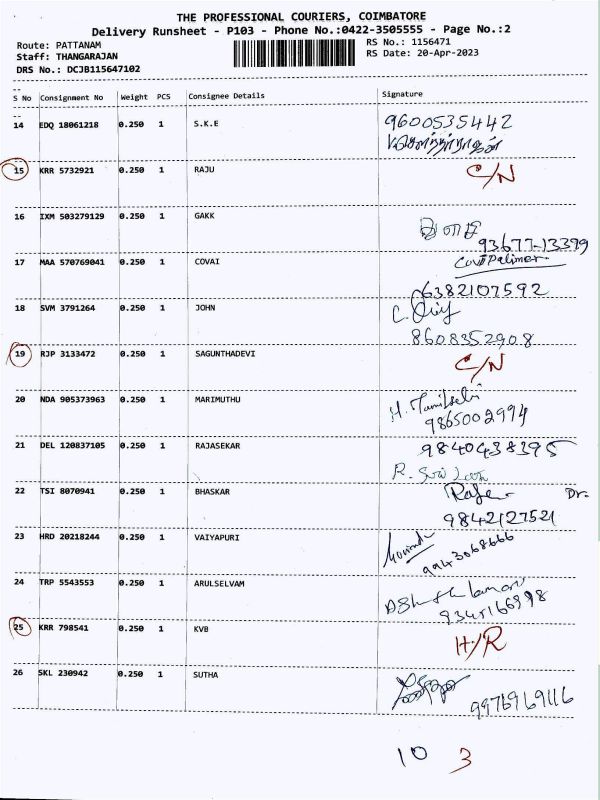 THE PROFESSIONAL COURIERS, COIMBATORE
Delivery Runsheet - P103 - Phone No.:0422-3505555 - Page No.:2
Route: PATTANAM
RS No.: 1156471
Staff: THANGARAJAN
RS Date: 20-Apr-2023
DRS No.: DCJB115647102
S No Consignment No Weight PCS Consignee Details Signature
14 EDQ 18061218 0.250 1 S.K.E 9600535442
15 KRR 5732921 0.250 1 RAJU C/N
16 IXM 503279129 0.250 1 GAKK
93677-13399
17 MAA 570769041 0.250 1 COVAI
6382107592
18 SVM 3791264 0.250 1 JOHN C.
8608352908
19 RJP 3133472 0.250 1 SAGUNTHADEVI C/N
20 NDA 905373963 0.250 1 MARIMUTHU
9865002994
21 DEL 120837105 0.250 1 RAJASEKAR 9840438395
R.
22 TSI 8070941 0.250 1 BHASKAR Dr.
9842127521
23 HRD 20218244 0.250 1 VAIYAPURI
9943068666
24 TRP 5543553 0.250 1 ARULSELVAM
25 KRR 798541 0.250 1 KVB H/R
26 SKL 230942 0.250 1 SUTHA
9976969116
10 3